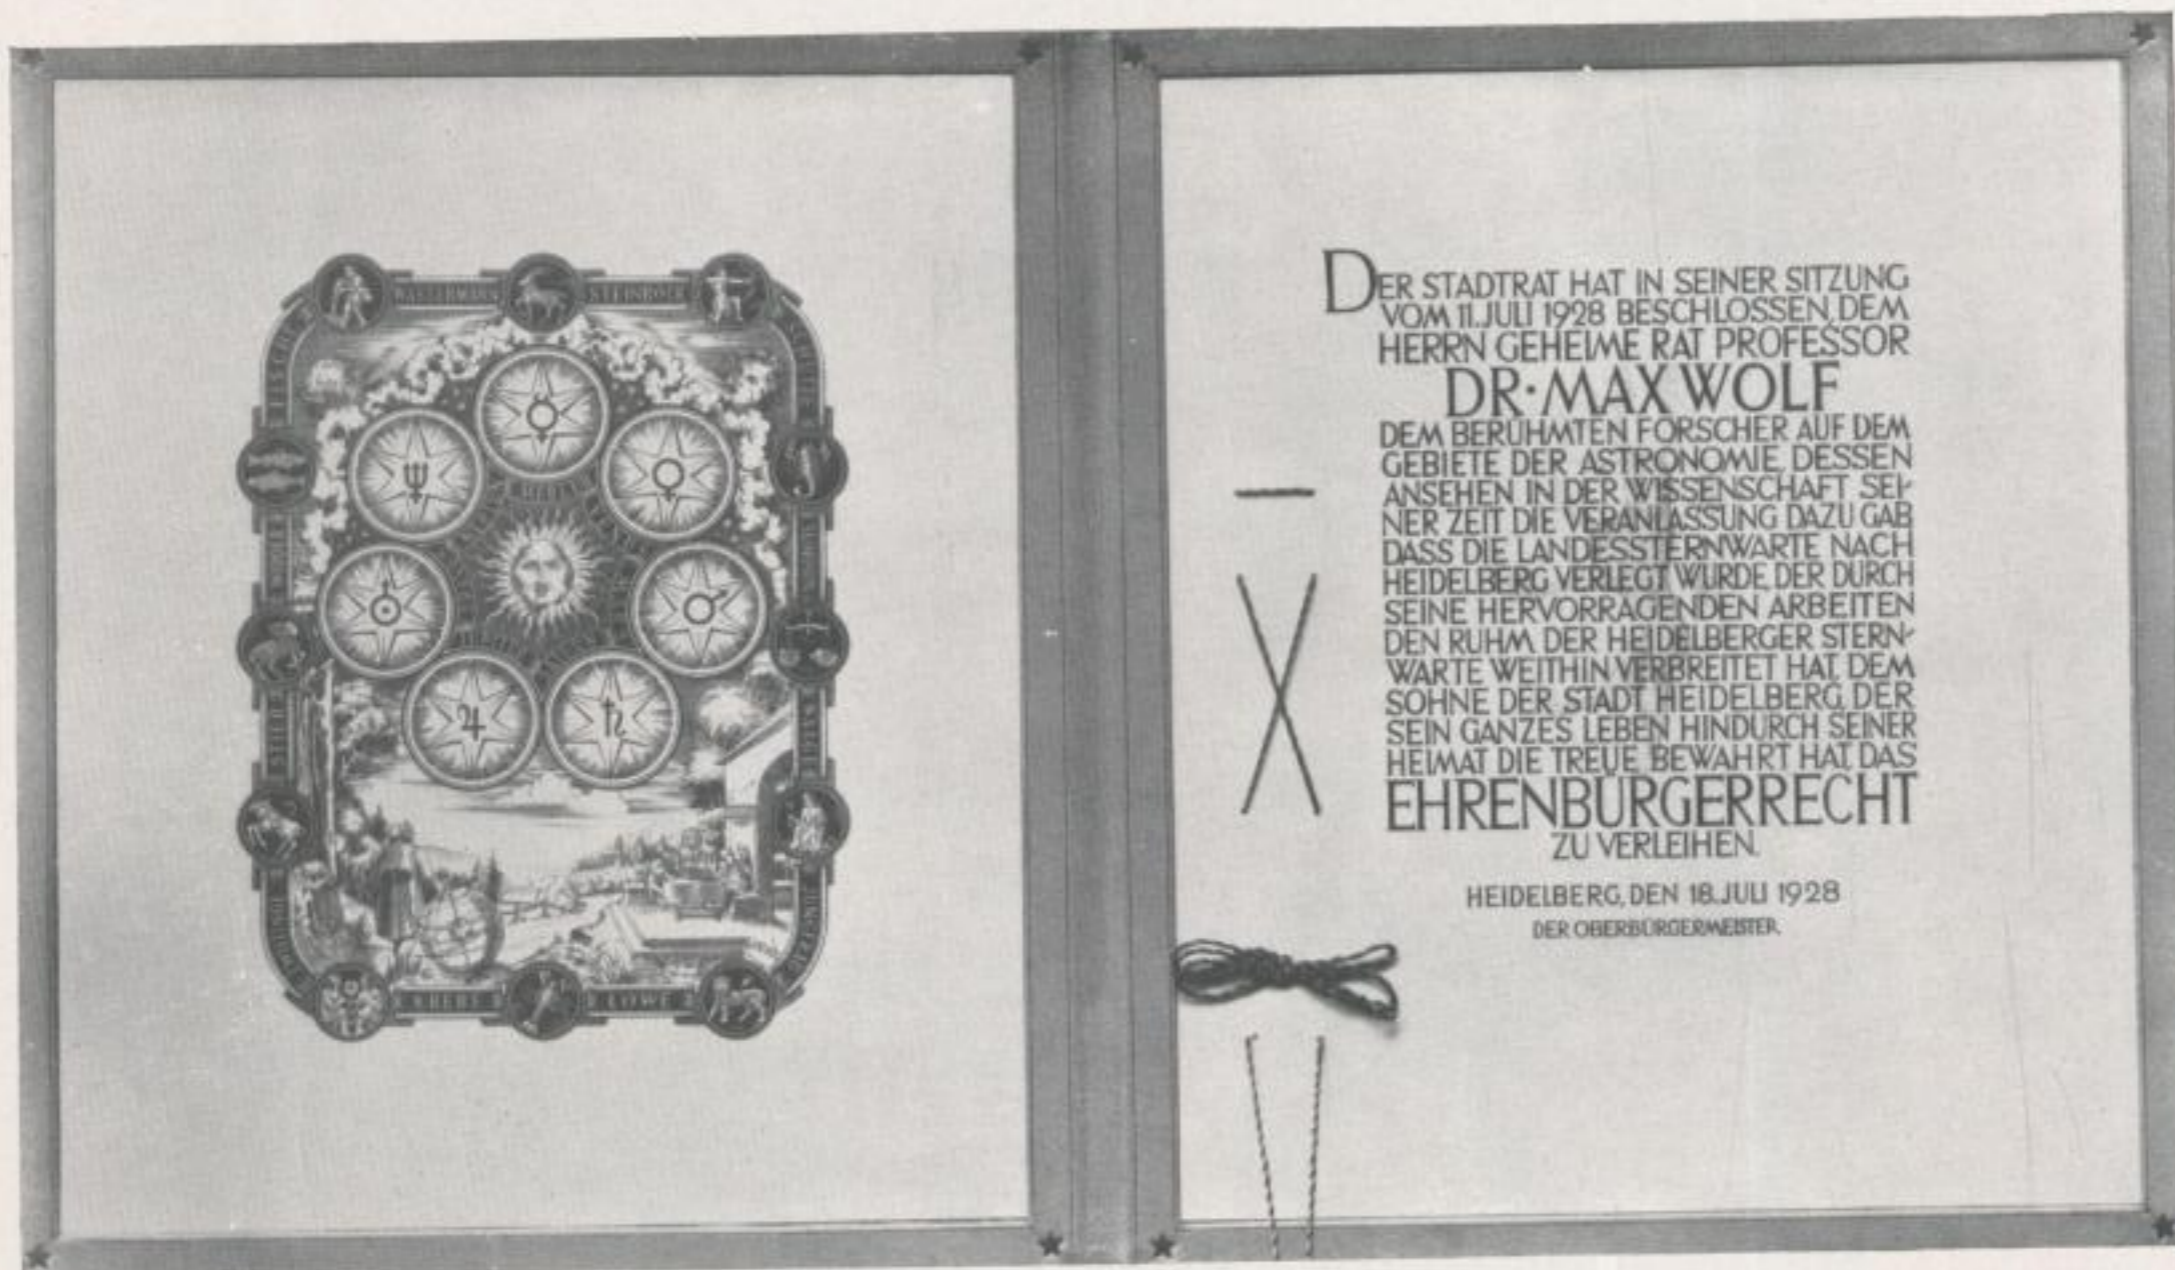 WASSERMANN
STEINBOCK
FISCHE
WIDDER
STIER
KREBS
LÖWE
JUNGFRAU
DER STADTRAT HAT IN SEINER SITZUNG
VOM 11. JULI 1928 BESCHLOSSEN, DEM
HERRN GEHEIME RAT PROFESSOR
DR · MAX WOLF
DEM BERÜHMTEN FORSCHER AUF DEM
GEBIETE DER ASTRONOMIE, DESSEN
ANSEHEN IN DER WISSENSCHAFT SEI-
NER ZEIT DIE VERANLASSUNG DAZU GAB
DASS DIE LANDESSTERNWARTE NACH
HEIDELBERG VERLEGT WURDE, DER DURCH
SEINE HERVORRAGENDEN ARBEITEN
DEN RUHM DER HEIDELBERGER STERN-
WARTE WEITHIN VERBREITET HAT, DEM
SOHNE DER STADT HEIDELBERG, DER
SEIN GANZES LEBEN HINDURCH SEINER
HEIMAT DIE TREUE BEWAHRT HAT, DAS
EHRENBÜRGERRECHT
ZU VERLEIHEN.
HEIDELBERG, DEN 18. JULI 1928
DER OBERBÜRGERMEISTER,